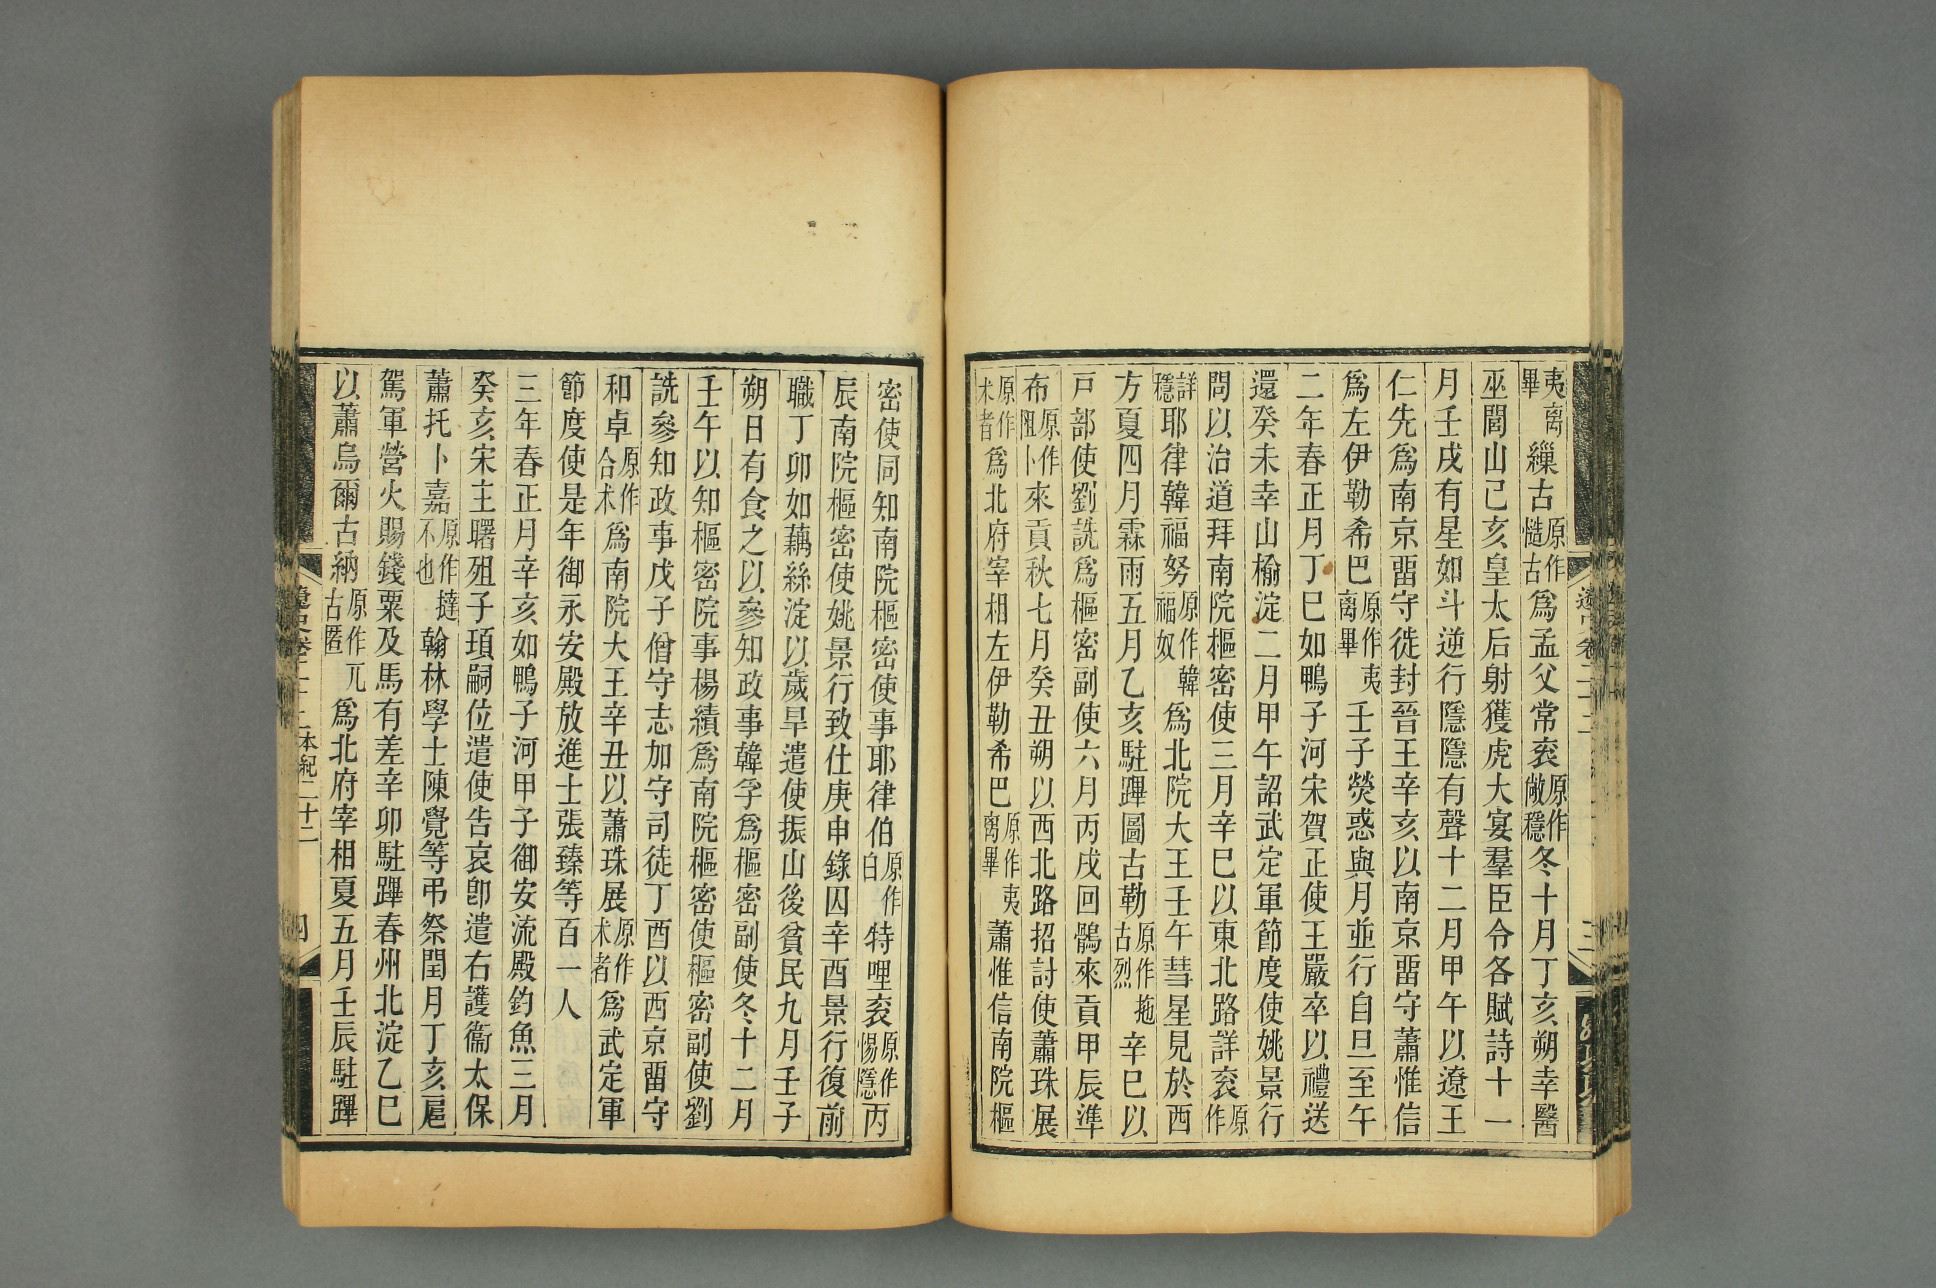 夷離畢繅古原作慥古爲孟父常衮原作敞穩冬十月丁亥朔幸醫
巫閭山己亥皇太后射獲虎大宴羣臣令各賦詩十一
月壬戌有星如斗逆行隱隱有聲十二月甲午以遼王
仁先爲南京畱守徙封晉王辛亥以南京畱守蕭惟信
爲左伊勒希巴原作夷離畢壬子熒惑與月並行自旦至午
二年春正月丁巳如鴨子河宋賀正使王嚴卒以禮送
還癸未幸山榆淀二月甲午詔武定軍節度使姚景行
問以治道拜南院樞密使三月辛巳以東北路詳衮原作
詳穩耶律韓福努原作韓福奴爲北院大王壬午彗星見於西
方夏四月霖雨五月乙亥駐蹕圖古勒原作拖古烈辛巳以
戸部使劉詵爲樞密副使六月丙戌回鶻來貢甲辰準
布原作阻卜來貢秋七月癸丑朔以西北路招討使蕭珠展
原作朮者爲北府宰相左伊勒希巴原作夷离畢蕭惟信南院樞
密使同知南院樞密使事耶律伯原作白特哩衮原作惕隱丙
辰南院樞密使姚景行致仕庚申錄囚辛酉景行復前
職丁卯如藕絲淀以歲旱遣使振山後貧民九月壬子
朔日有食之以參知政事韓孚爲樞密副使冬十二月
壬午以知樞密院事楊績爲南院樞密使樞密副使劉
詵參知政事戊子僧守志加守司徒丁酉以西京畱守
和卓原作合朮爲南院大王辛丑以蕭珠展原作朮者爲武定軍
節度使是年御永安殿放進士張臻等百一人
三年春正月辛亥如鴨子河甲子御安流殿釣魚三月
癸亥宋主曙殂子頊嗣位遣使告哀卽遣右護衞太保
蕭托卜嘉原作撻不也翰林學士陳覺等弔祭閏月丁亥扈
駕軍營火賜錢粟及馬有差辛卯駐蹕春州北淀乙巳
以蕭烏爾古納原作兀古匿爲北府宰相夏五月壬辰駐蹕
遼史卷二十二 本紀二十二 四